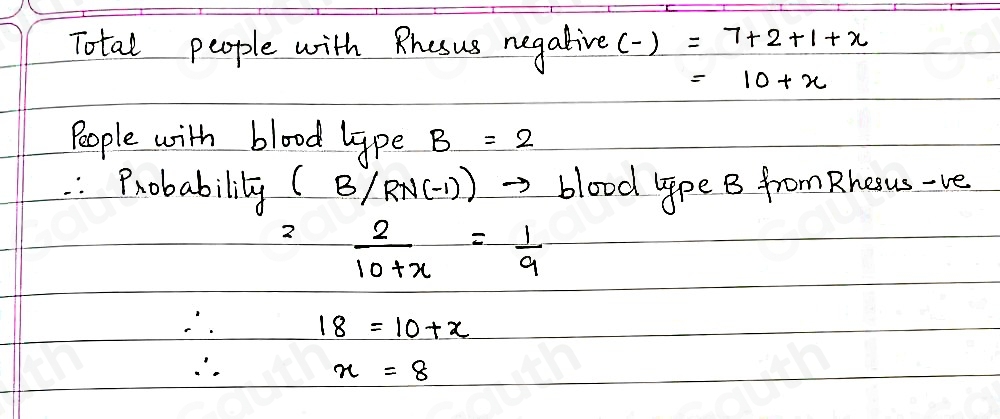 Total people with Rhesus negative (-) = 7+2+1+x
= 10+x
People with blood type B = 2
∴ Probability ( B/RN(-1)) → blood type B from Rhesus -ve
= 2/(10+x) = 1/9
∴ 18 = 10+x
∴ x = 8